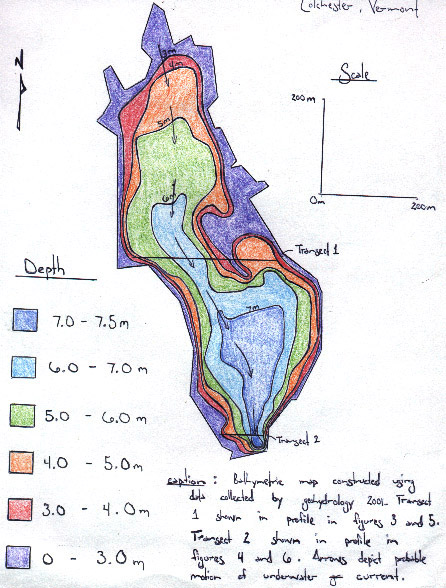 Colchester, Vermont
N
Scale
200m
0m
200m
3m
4m
5m
6m
7m
Transect 1
Transect 2
Depth
7.0 - 7.5m
6.0 - 7.0m
5.0 - 6.0m
4.0 - 5.0m
3.0 - 4.0m
0 - 3.0m
caption: Bathymetric map constructed using
data collected by geohydrology 2001. Transect
1 shown in profile in figures 3 and 5.
Transect 2 shown in profile in
figures 4 and 6. Arrows depict probable
motion of underwater current.